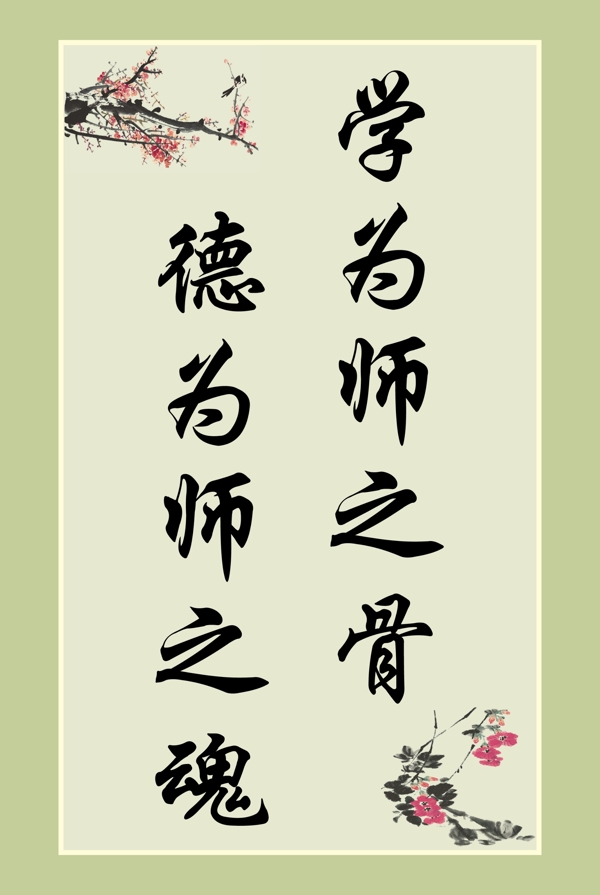 学为师之骨
德为师之魂